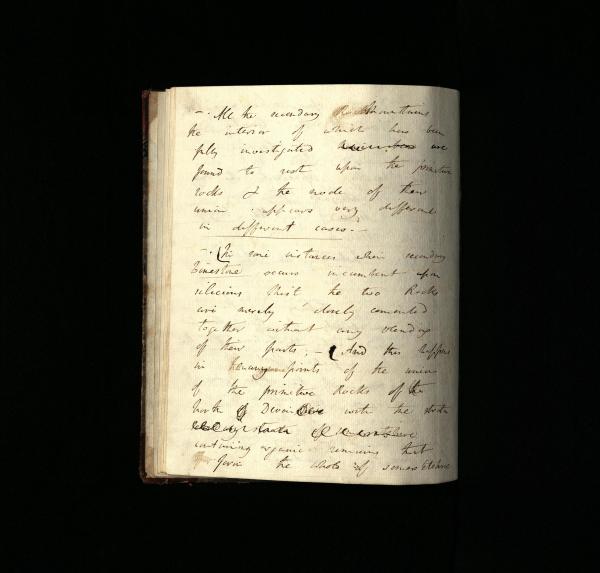 — . All the secondary Mountains
the interior of which has been
fully investigated are
found to rest upon the primitive
rocks & the mode of their
union appears very different
in different cases. —
— . In some instances when secondary
Limestone occurs incumbent upon
silicious Shist the two Rocks
are merely closely cemented
together without any blending
of their parts. — And this happens
in many points of the union
of the primitive Rocks of the
North of Devon with the strata
containing organic remains that
form the whole of Somersetshire